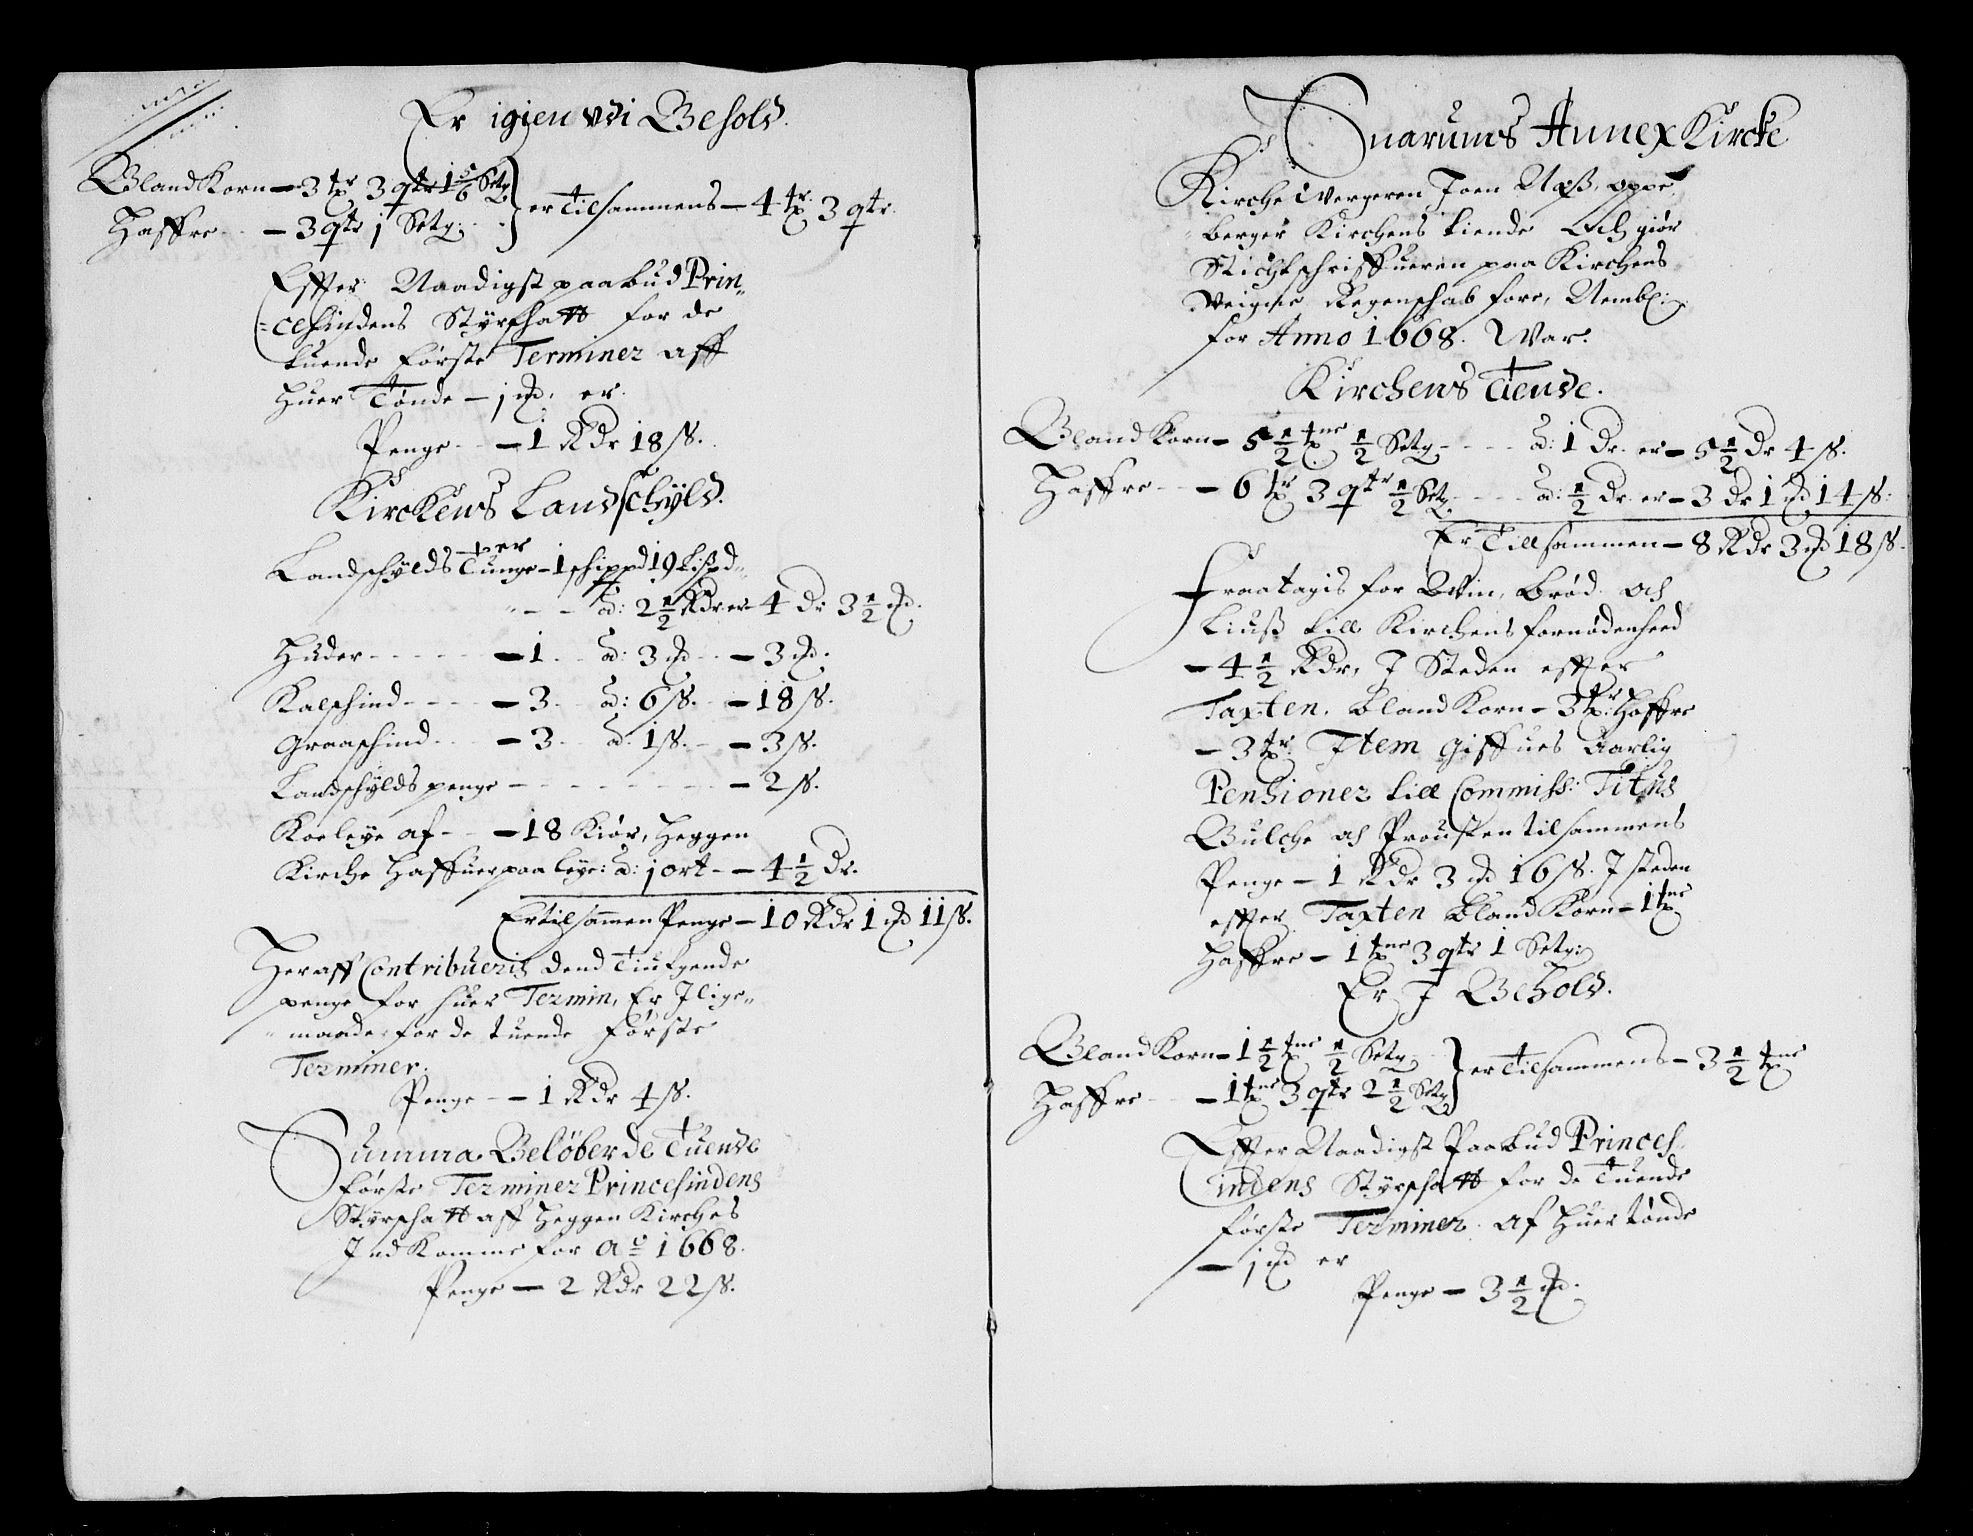 Er igien udi Behold.
Bland Korn – 3 tr 3 qtr 1 5/6 Setg
Haffre – 3 qtr j Setg:
er tilsammens – 4 tr 3 qtr.
Effter Naadigst paabud Prin„
=cessindens Styrschatt for de
tuende første Terminer aff
Huer Tønde – j md. er.
Penge – 1 Rdr 18 ß.
Kirckens Landschyld.
Landschylds Tunge – 1 schippd 19 Lißpd„
ad: 2 1/2 Rdr er 4 dr 3 1/2 md.
Huder – 1 ad: 3 md – 3 md.
Kalfschind – 3 ad: 6 ß. – 18 ß.
Graaschind – 3 ad: 1 ß. – 3 ß.
Landschylds penge – 2 ß.
Koeleye af – 18 Kiør, Heggen
Kirche Haffuer paa leye: ad: j ort – 4 1/2 Dr.
Er tilsammen Penge – 10 Rdr 1 md 11 ß.
Her aff Contribueris dend Tiufgende
penge for huer Termin, Er J lige„
maade for de tuende første
Terminer.
Penge – 1 Rdr 4 ß.
Summa Beløber de Tuende
første Terminer Princessindens
Styrschatt aff Heggen Kirches
Ind Komme for Ao 1668.
Penge – 2 Rdr 22 ß.
Snarums Annex Kircke
Kirche Wergeren Joen Næß, oppe„
berger Kirchens tiende Och giør
Stichtschriffueren paa Kirchens
Weigne Regenschab fore, Nembl:
for Anno 1668. War.
Kirchens Tiende.
Bland Korn – 5 1/2 tne 1/2 Setg – ad: 1 Dr. er – 5 1/2 Dr 4 ß.
Haffre – 6 tr 3 qtr 1/2 Setg – ad: 1/2 Dr er – 3 Dr 1 md 14 ß.
Er Tillsammen – 8 Rdr 3 md 18 ß.
Fraatagis for Win, Brød och
Liuß till Kirchens fornødenheed
– 4 1/2 Rdr, J Steden effter
Taxten. Bland Korn – 3 tr: Haffre
– 3 tr. Jtem giffues Aarlig
Pensioner till Commiss: Titus
Bulche och Prousten tilsammens
Penge – 1 Rdr 3 md 16 ß. J steden
effter Taxten Bland Korn – 1 tne
Haffre – 1 tne 3 qtr 1 Setg:
Er J Behold.
Bland Korn – 1 1/2 tne 1/2 Setg
Haffre – 1 tne 3 qtr 2 1/2 Setg
er tilsammens – 3 1/2 tne
Effter Naadigst Paabud Princes„
indens Styrschatt for de Tuende
første Terminer af Huer tønde
– j md er
Penge – 3 1/2 md.